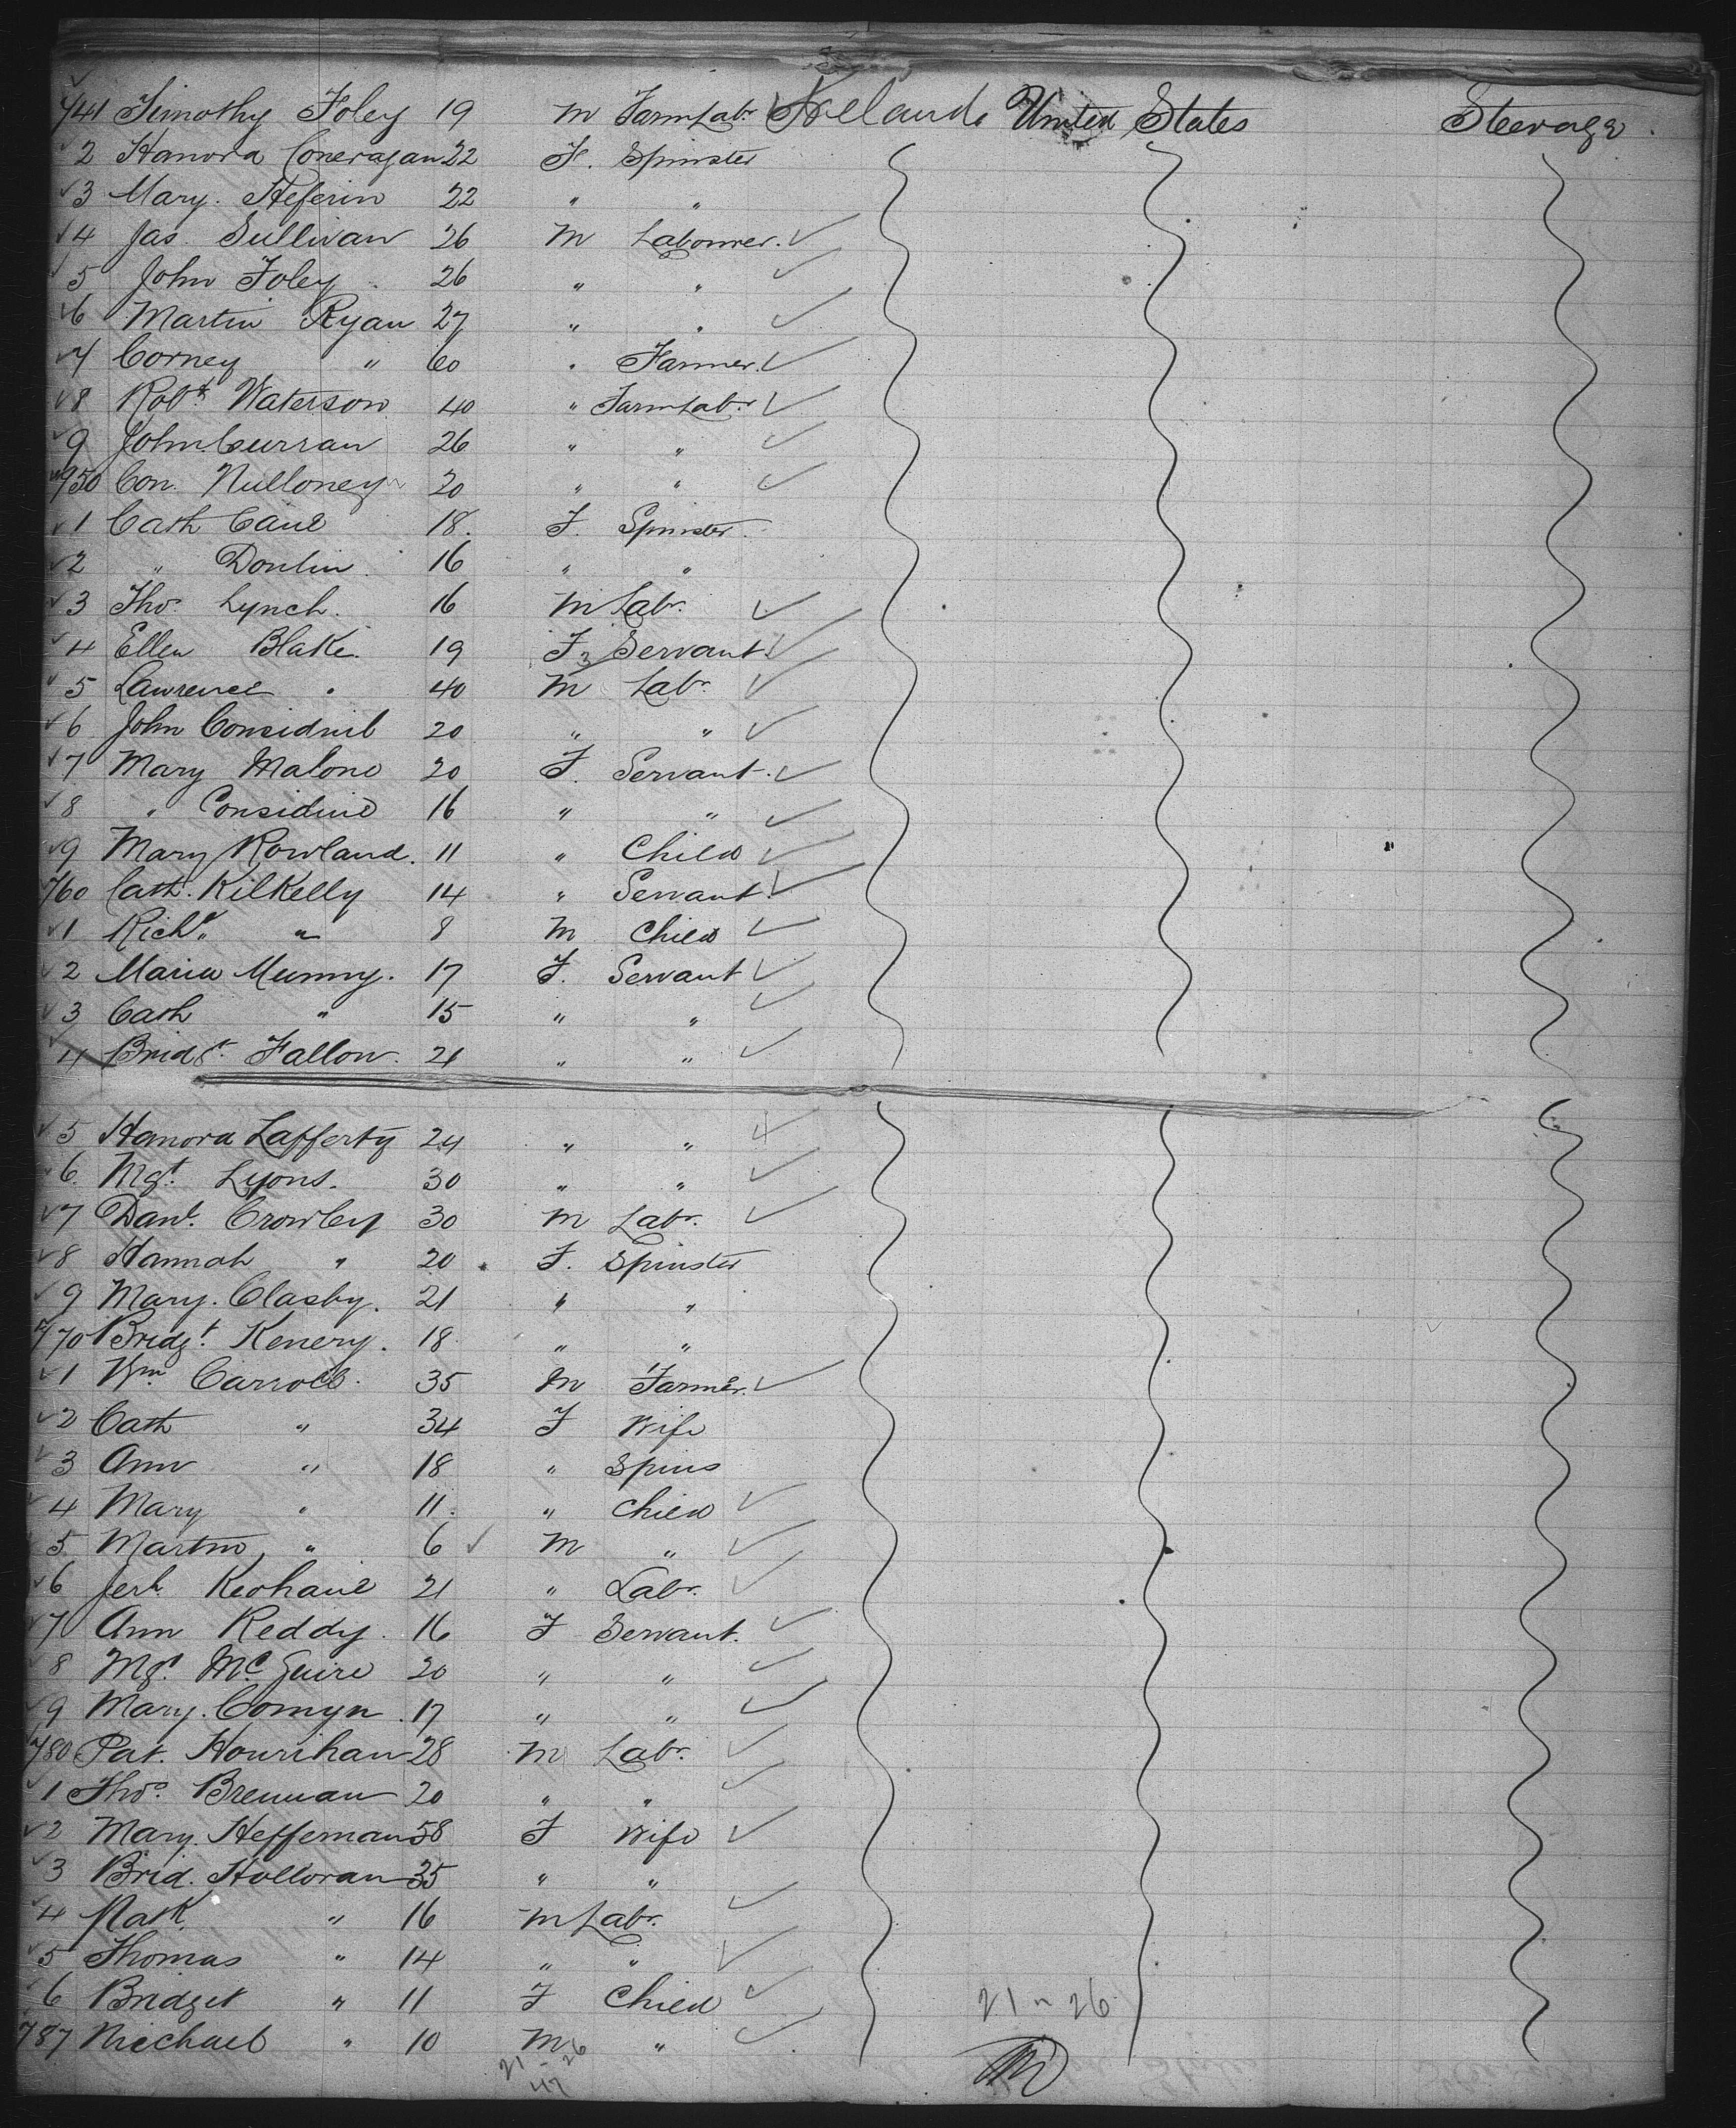 741 Timothy Foley 19 M Farm Labr Ireland United States Steerage
2 Hanora Coneragan 22 F. Spinster
3 Mary. Heferin 22 " "
4 Jas. Sullivan 26 M Labourer.
5 John Foley 26 " "
6 Martin Ryan 27 " "
7 Corney " 60 " Farmer.
8 Robt Waterson 40 " Farm Labr
9 John Curran 26 " "
750 Con. Nulloney 20 " "
1 Cath Cane 18. F. Spinster
2 " Donlin 16 " "
3 Thos. Lynch. 16 M Labr.
4 Ellen Blake. 19 F Servant.
5 Lawrence " 40 M Labr.
6 John Considine 20 " "
7 Mary Malone 20 F. Servant.
8 " Considine 16 " "
9 Mary Rowland. 11 " Child
760 Cath. Kilkelly 14 " Servant.
1 Richd. " 8 M Child
2 Maria Munny. 17 F. Servant
3 Cath " 15 " "
4 Bridgt. Fallon. 21 " "
5 Hanora Lafferty 24 " "
6. Mgt. Lyons. 30 " "
7 Danl. Crowley 30 M Labr.
8 Hannah " 20 F. Spinster
9 Mary. Clasby. 21 " "
770 Bridgt. Kenery. 18 " "
1 Wm. Carroll. 35 M Farmer.
2 Cath " 34 F Wife
3 Ann " 18 " Spins
4 Mary " 11. " Child
5 Martin " 6 M "
6 Jerh. Keohane 21 " Labr.
7 Ann Reddy. 16 F Servant.
8 Mgt. McGuire 20 " "
9 Mary. Comyn. 17 " "
780 Pat. Hourihan 28 M Labr.
1 Thos. Brennan 20 " "
2 Mary. Heffernan 58 F Wife
3 Brid. Holloran 35 " "
4 Patk. " 16 M Labr.
5 Thomas " 14 " "
6 Bridget " 11 F Child 21 " 26
787 Michael " 10 M "
21 - 26
47